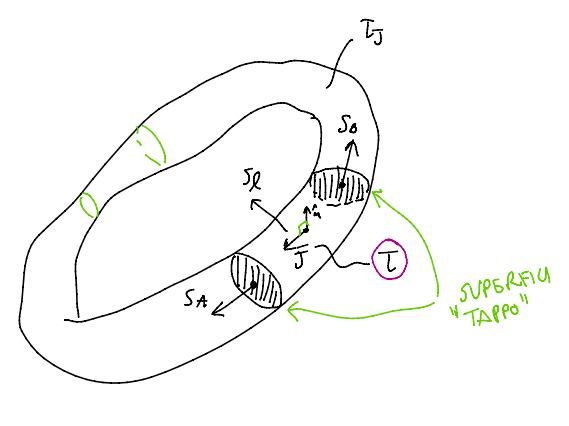 τ_J
S_B
S_l
n̂
J
τ
S_A
SUPERFICI
"TAPPO"